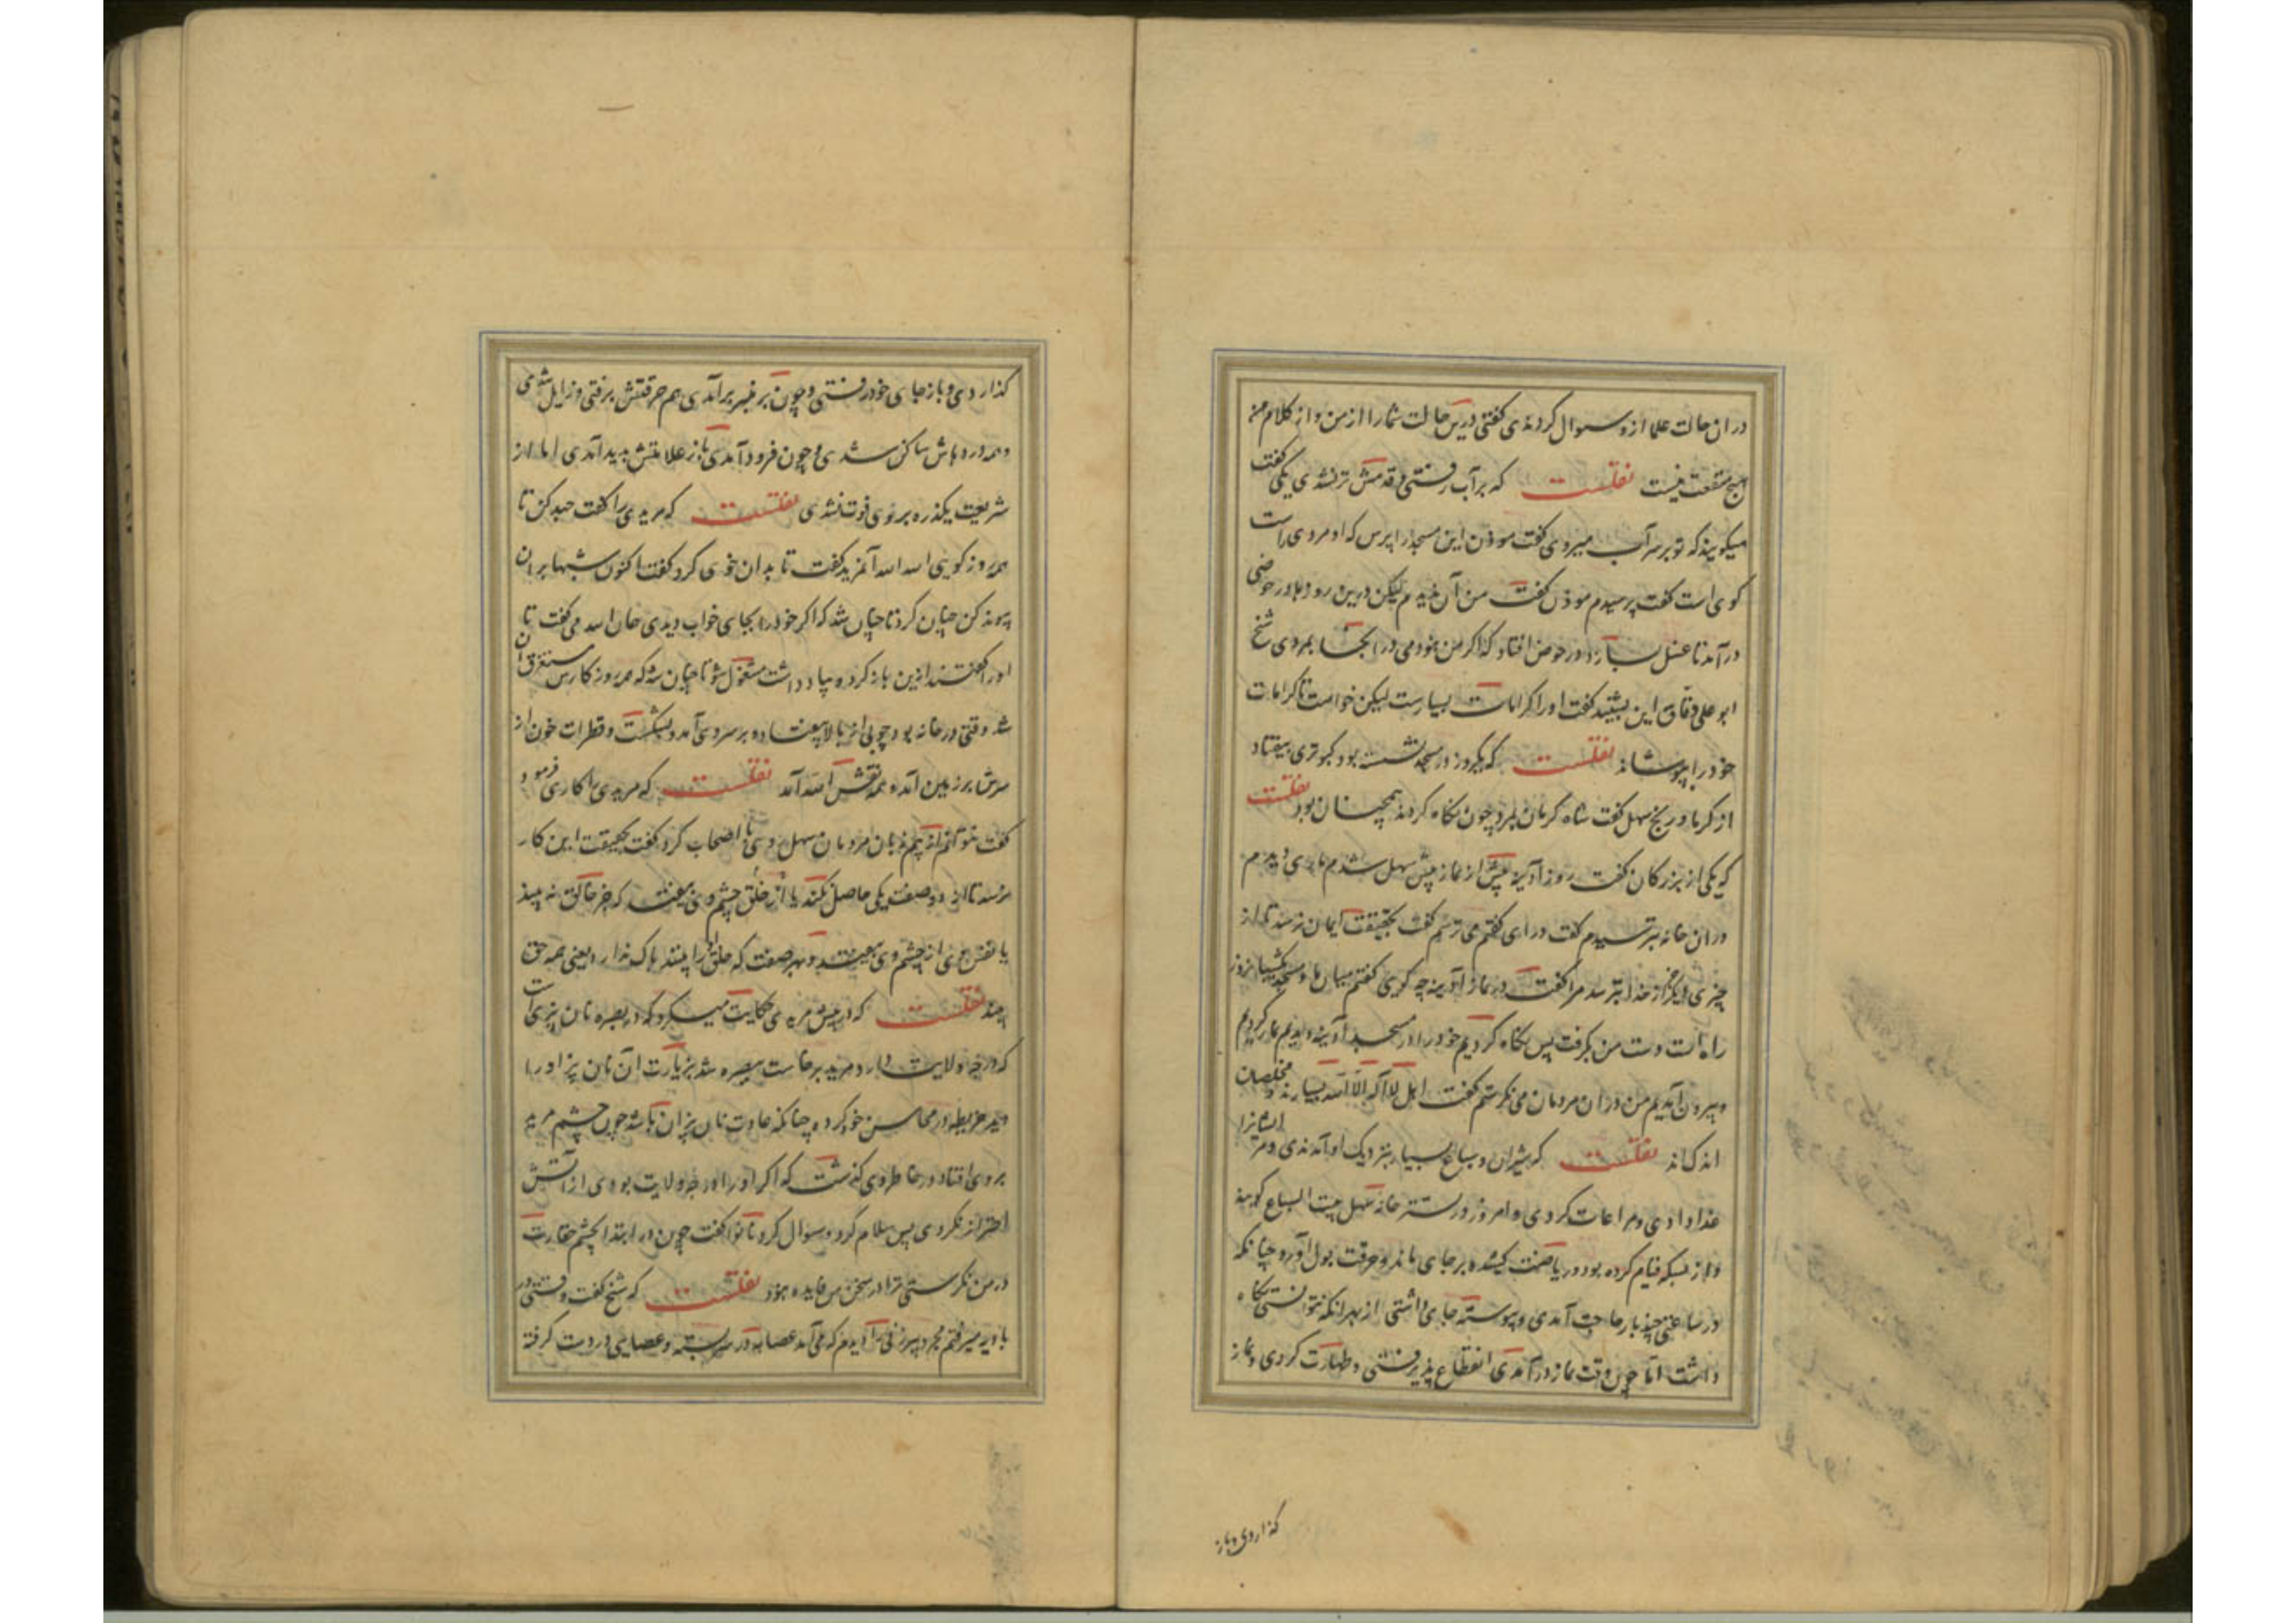 در ان حالت علما ازو سوال کردندی گفتی درین حالت شما را از من و از کلام من
هیچ منفعت نیست نقلست که بر آب رفتی و قدمش تر نشدی یکی گفت
میگویند که تو بر سر آب میروی گفت موذن این مسجد را بپرس که او مردی راست
کوی است گفت پرسیدم موذن گفت من آن ندیدم لیکن درین روزها در حوضی
درآمد تا غسل سازد در حوض افتاد که اگر من نبودمی در انجا بمردی شیخ
ابو علی دقاق این بشنید گفت او را کرامات بسیارست لیکن خواست تا کرامات
خود را بپوشاند نقلست که یکروز در مسجد نشسته بود کبوتری بیفتاد
از گرما و رنج سهل گفت شاه کرمان بمرد چون نگاه کردند همچنان بود نقلست
که یکی از بزرگان گفت روز آدینه پیش از نماز پیش سهل شدم ماری دیدم
در ان خانه بترسیدم گفت در ای گفتم می ترسم گفت بحقیقت ایمان نرسد تا از
چیزی دیگر جز از خدا بترسد مرا گفت در نماز آدینه چه گویی گفتم میان ما و مسجد یکشبانروز
راه است دست من بگرفت پس نگاه کردیم خود را در مسجد آدینه دیدیم نماز کردیم
و بیرون آمدیم من در ان مردمان می نگرستم گفت اهل لا اله الا الله بسیارند و مخلصان
اندک اند نقلست که شیران و سباع بسیار بنزدیک او آمدندی و مر ایشانرا
غذا دادی و مراعات کردی و امروز در تستر خانه سهل بیت السباع گویند
و از بسکه قیام کرده بود و ریاضت کشیده بر جای بماند و حرقت بول آورد چنانکه
در ساعتی چند بار حاجت آمدی و پیوسته جامی داشتی از بهر انکه نتوانستی نگاه
داشت اما چون وقت نماز درآمدی انقطاع پذیرفتی و طهارت کردی و نماز
گذاردی و باز
گذاردی و باز جای خود رفتی و چون بر منبر برآمدی هم حرقتش برفتی و زایل شدی
و همه دردهاش ساکن شدی و چون فرود آمدی باز علامتش پدید آمدی اما از
شریعت یکذره بر وی فوت نشدی نقلست که مریدی را گفت جهد کن تا
همه روز گویی الله الله آن مرید گفت تا بدان خوی کرد گفت اکنون شبها بر ان
پیوند کن چنان کرد تا چنان شد که اگر خود را بجای خواب دیدی همان الله می گفت تا
او را گفتند ازین باز گرد و بیاد داشت مشغول شو تا چنان شد که همه روزگارش مستغرق ان
شد وقتی در خانه بود چوبی از بالا بیفتاد و بر سر وی آمد و بشکست و قطرات خون از
سرش بر زمین آمده همه نقش الله آمد نقلست که مریدی را کاری فرمود
گفت نتوانم از بیم زبان مردمان سهل روی با اصحاب کرد گفت بحقیقت این کار
نرسد تا از دو صفت یکی حاصل نکند یا از خلق چشم وی بیفتد که جز خالق نه بیند
یا نفس وی از چشم وی بیفتد و بهر صفت که خلق او را بینند باک ندارد یعنی همه حق
بیند نقلست که در پیش مریدی حکایت میکرد که در بصره نان پزی است
که درجه ولایت دارد مرید برخاست ببصره شد بزیارت ان نان پز او را
دید خریطه در محاسن خود کرده چنانکه عادت نان پزان باشد چون چشم مرید
بر وی افتاد در خاطر وی گذشت که اگر او را درجه ولایت بودی از آتش
احتراز نکردی پس سلام کرد و سوال کرد نانوا گفت چون در ابتدا بچشم حقارت
در من نگرستی ترا در سخن من فایده نبود نقلست که شیخ گفت وقتی در
بادیه میرفتم مجرد پیرزنی را دیدم که می آمد عصابه در سر بسته و عصایی در دست گرفته